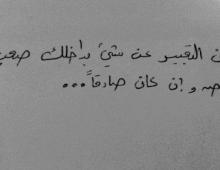 ن التعبير عن شيئ بداخلك صعب
صه و إن كان صادقاً...